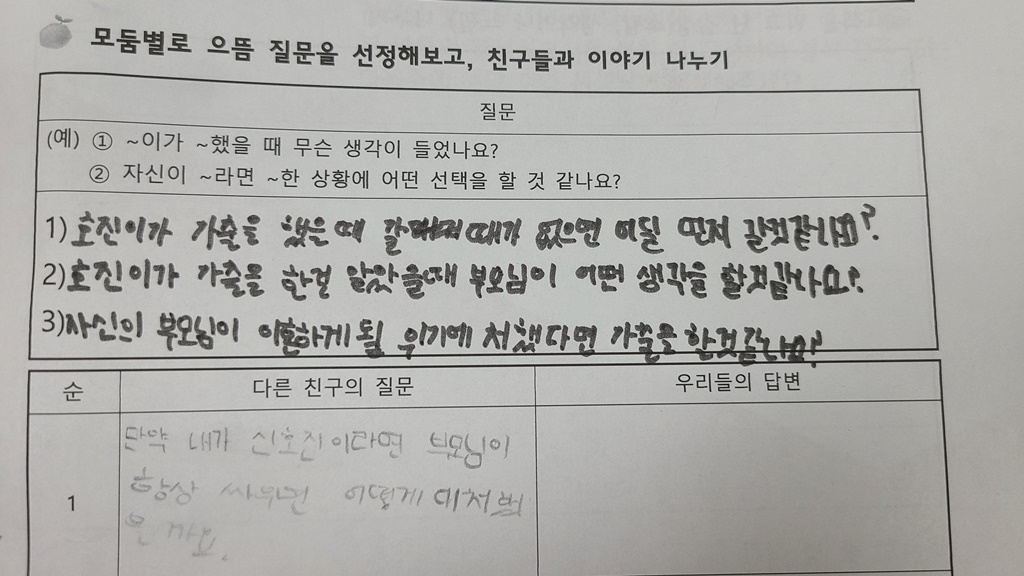 모둠별로 으뜸 질문을 선정해보고, 친구들과 이야기 나누기
질문
(예) ① ~이가 ~했을 때 무슨 생각이 들었나요?
② 자신이 ~라면 ~한 상황에 어떤 선택을 할 것 같나요?
1) 호진이가 가출을 했을 때 갈 데가 없으면 어딜 먼저 갈것같나요?
2) 호진이가 가출을 한걸 알았을때 부모님이 어떤 생각을 할것같나요?
3) 자신의 부모님이 이혼하게 될 위기에 처했다면 가출을 한것같나요?
순 다른 친구의 질문 우리들의 답변
만약 내가 신호진이라면 부모님이
1 항상 싸우면 어떻게 대처법
은